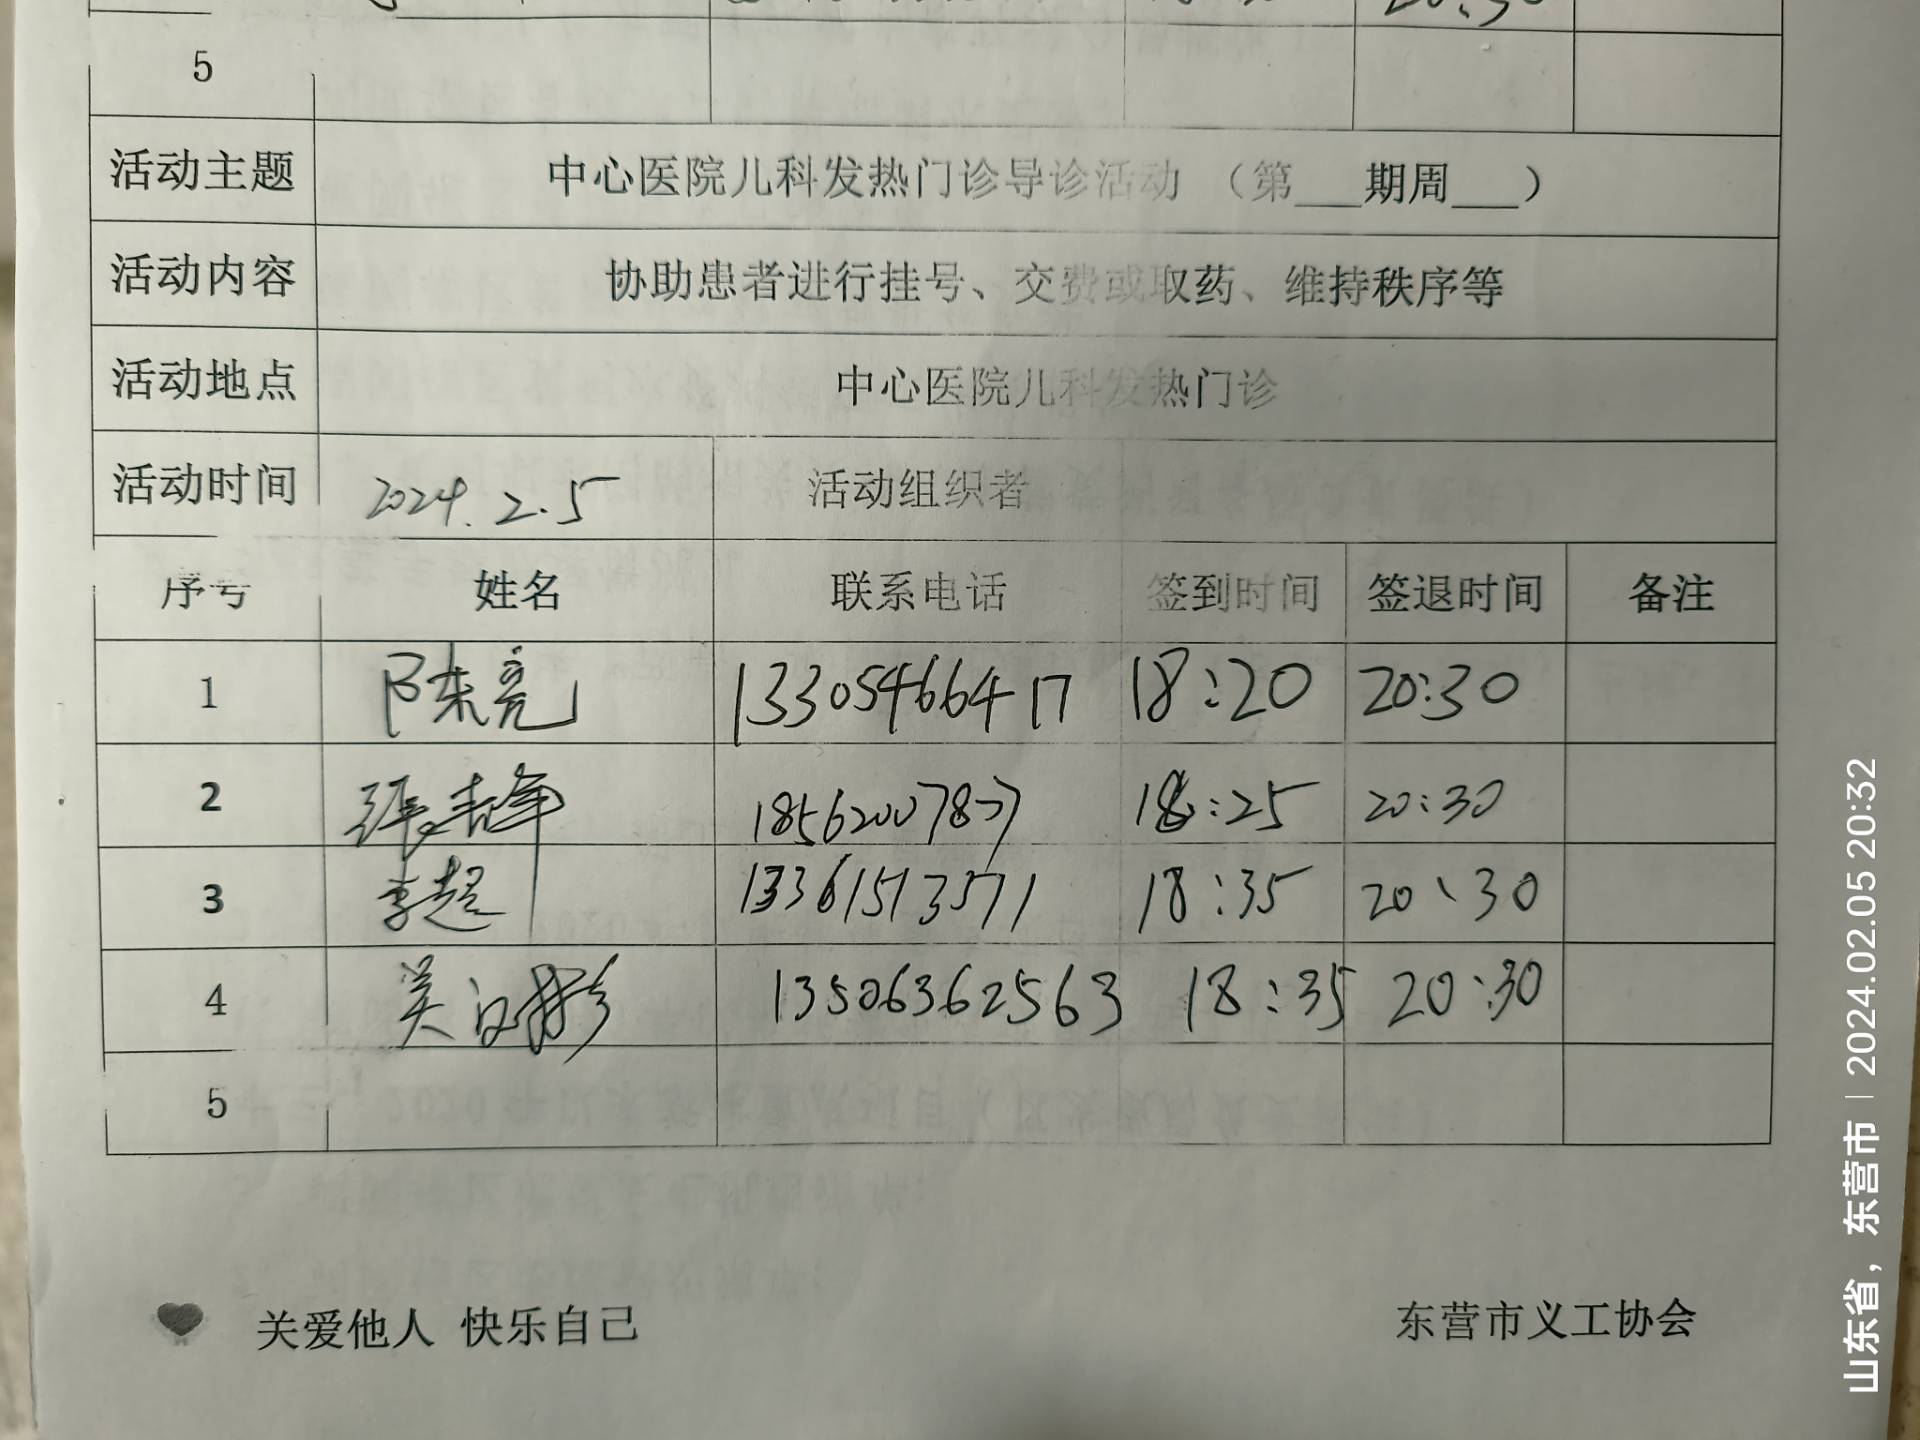 20:30
5
活动主题 中心医院儿科发热门诊导诊活动 （第___期周___）
活动内容 协助患者进行挂号、交费或取药、维持秩序等
活动地点 中心医院儿科发热门诊
活动时间 2024.2.5 活动组织者
序号 姓名 联系电话 签到时间 签退时间 备注
1 陈亮 13305466417 18:20 20:30
2 18:25 20:30
3 李超 13361513571 18:35 20:30
4 吴 13506362563 18:35 20:30
5
关爱他人 快乐自己 东营市义工协会
山东省，东营市 | 2024.02.05 20:32